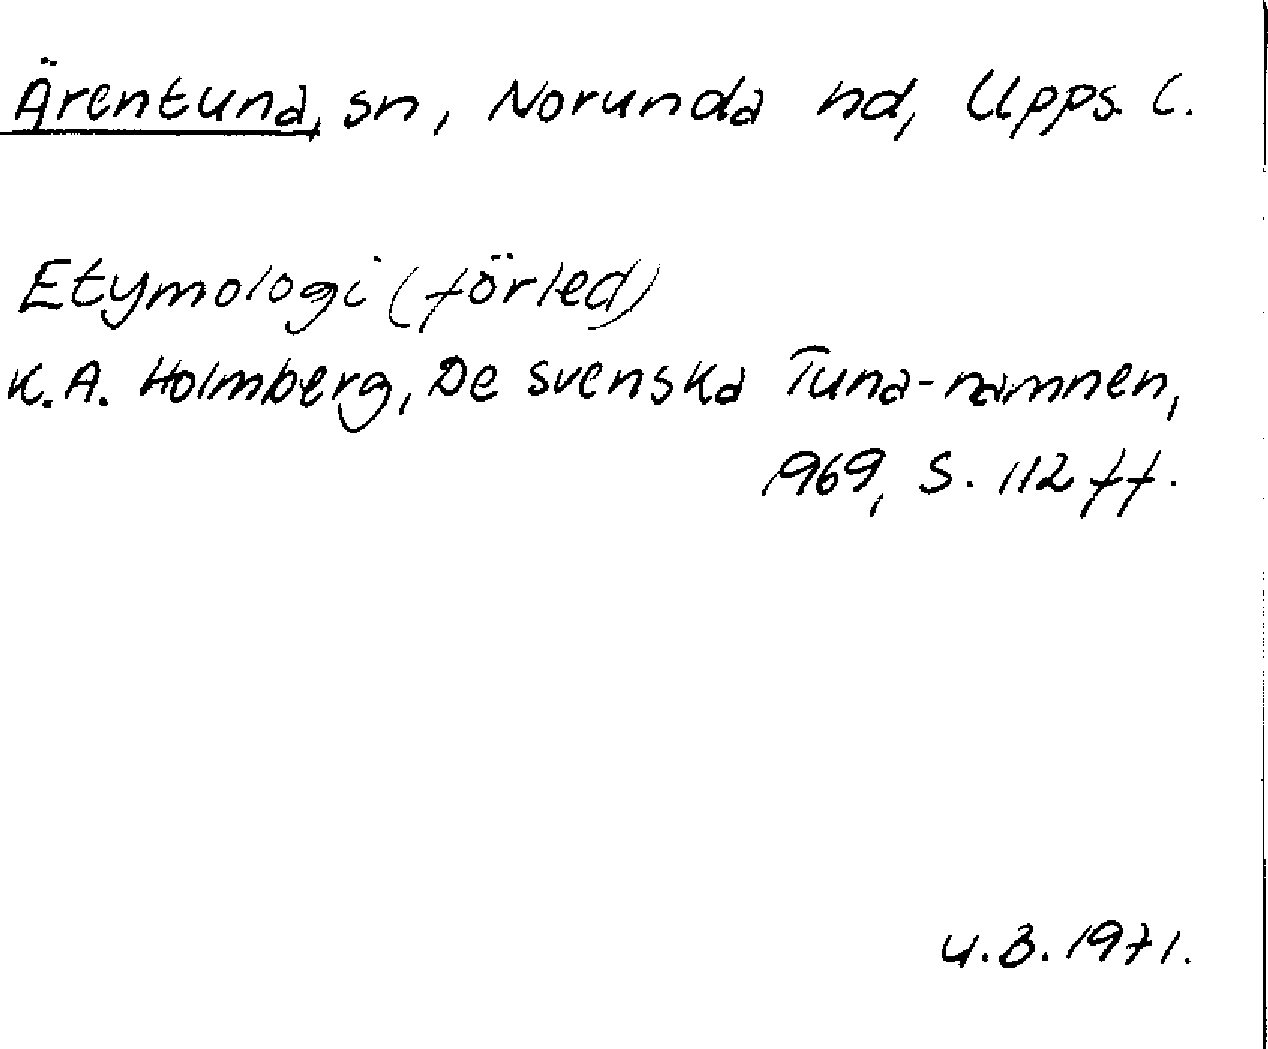 Ärentuna, sn, Norunda hd, Upps. C.
Etymologi (förled)
K.A. Holmberg, De svenska Tuna-namnen,
1969, S. 112 ff.
U.B. 1971.